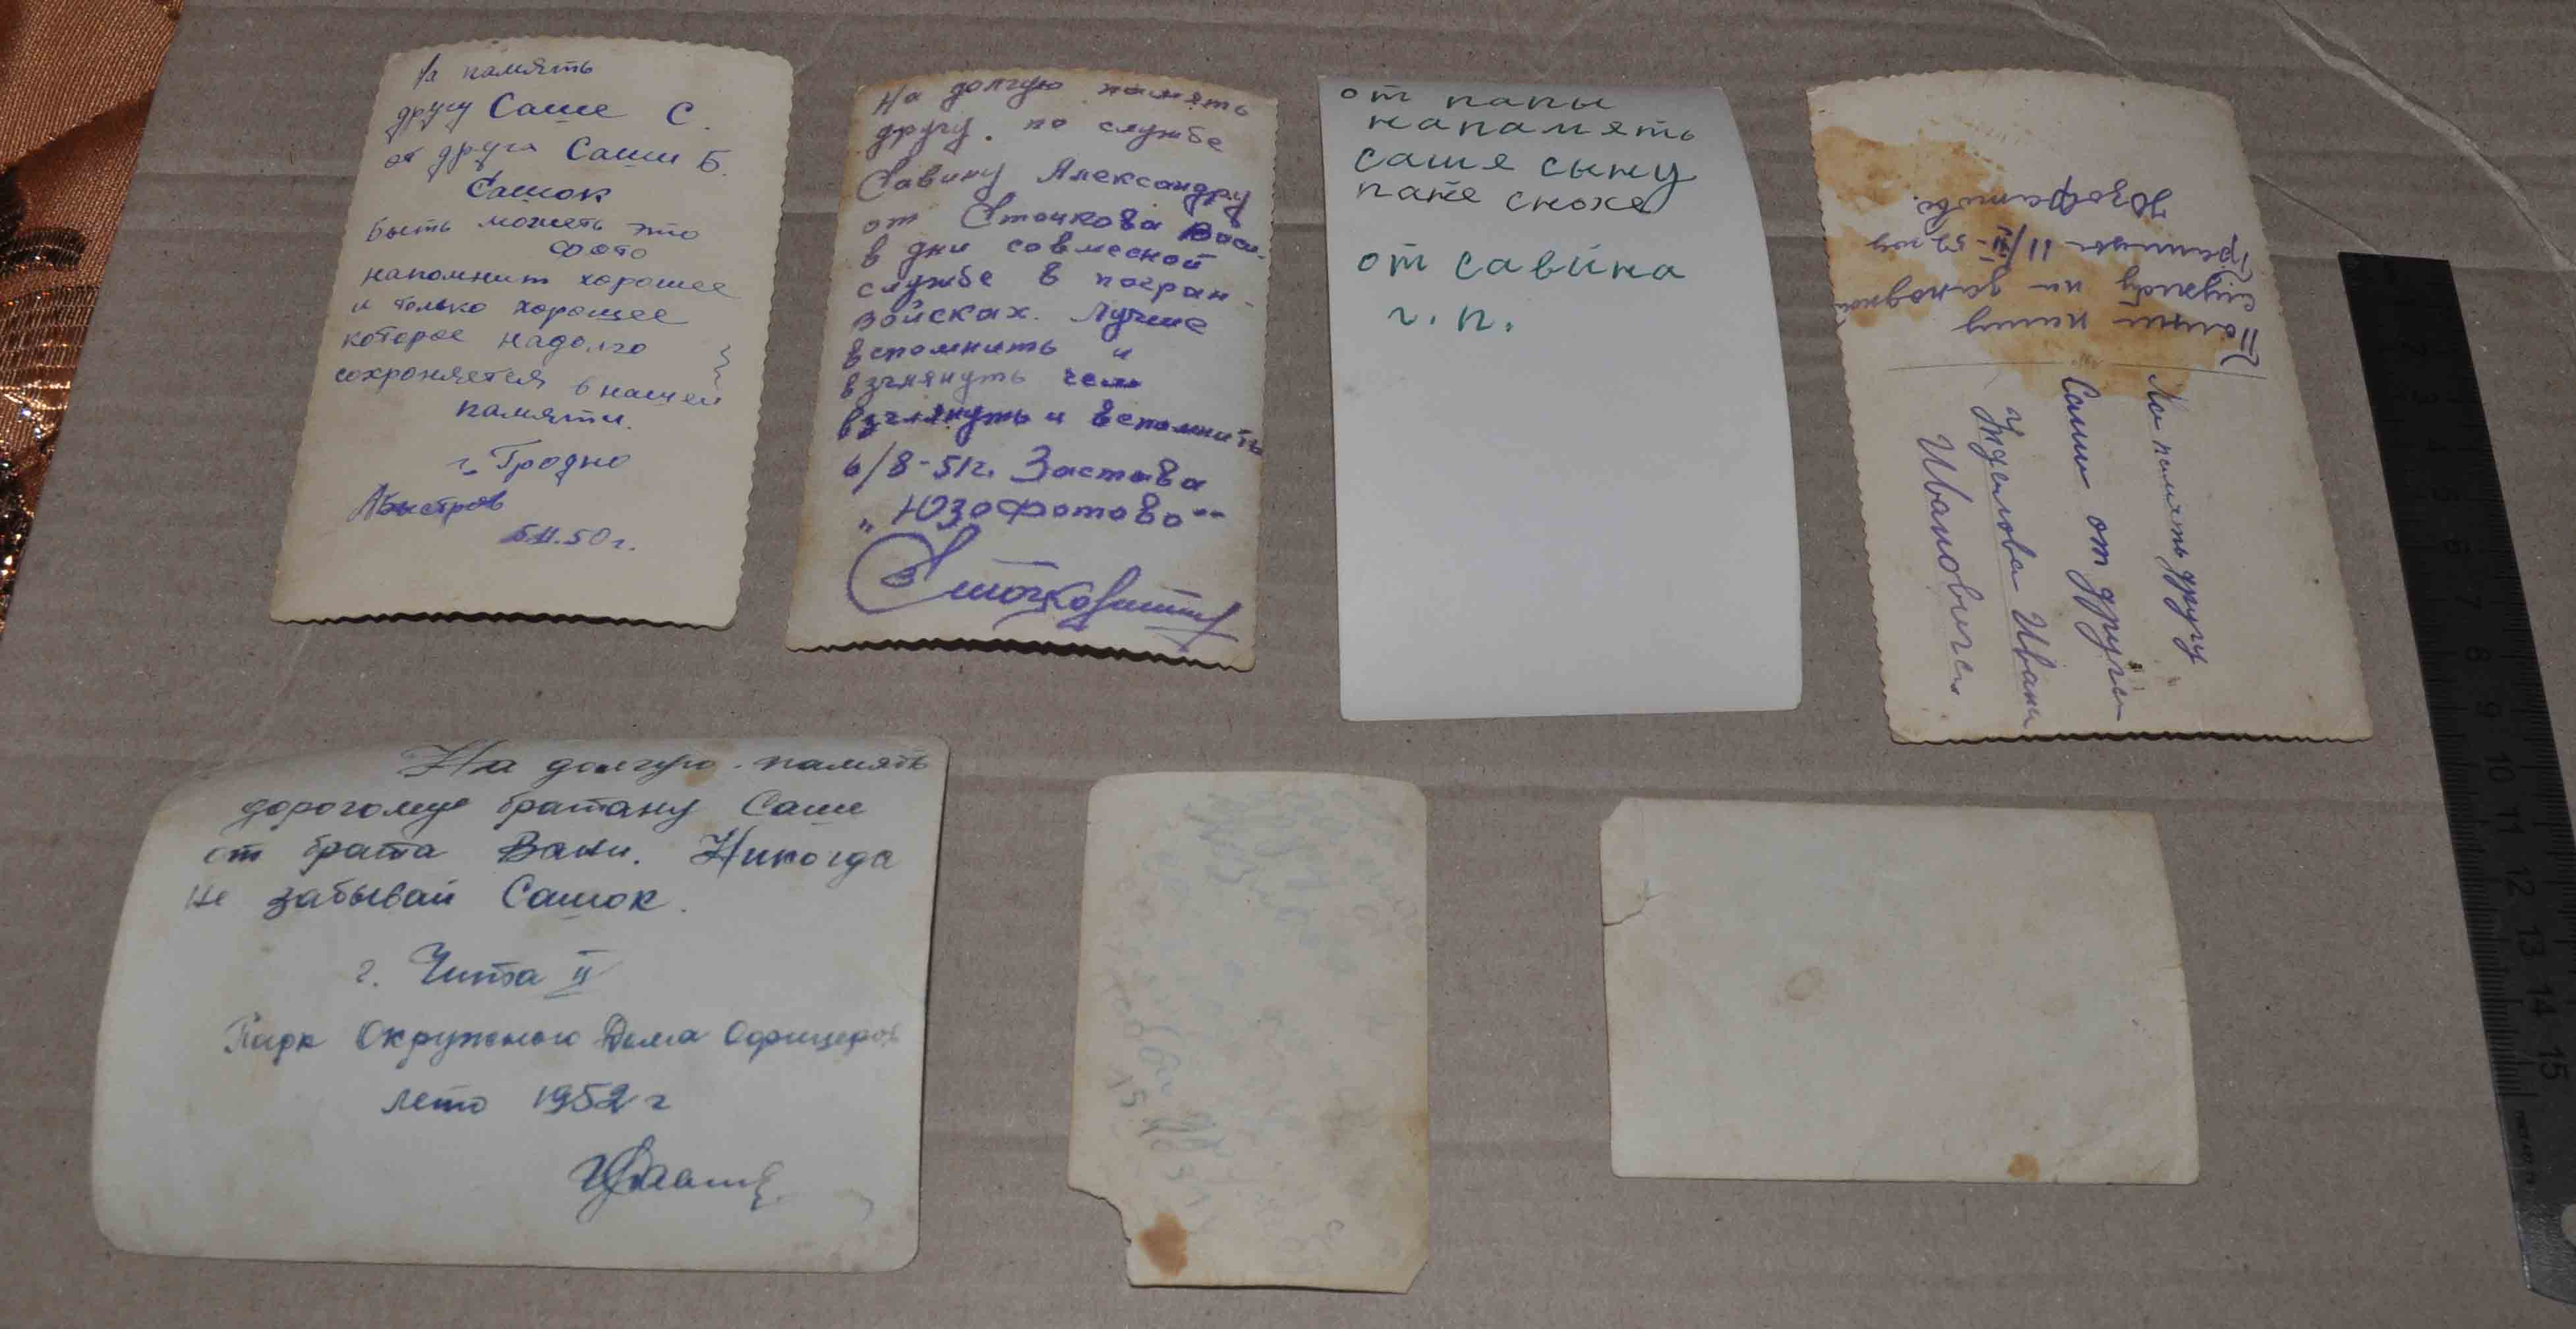 На память
другу Саше С.
от друга Саши Б.
Сашок
быть может это
фото
напомнит хорошее
и только хорошее
которое надолго
сохраняется в нашей
памяти.
г. Гродно
АБыстров
50г.
На долгую память
другу по службе
Савину Александру
от Сточкова Васи.
в дни совмесной
службе в погран-
войсках. Лучше
вспомнить и
взглянуть чем
взглянуть и вспомнить
6/8-51г. Застава
„Юзафатово"
от папы
напамять
саше сыну
пате снохе
от савина
г. п.
Помни нашу
службу на западной
Границы 11/
На память другу
Саши от друга
Ивана
Ивановича
На долгую память
дорогому братану Саше
от брата Вани. Никогда
не забывай Сашок.
г. Чита II
Парк Окружного Дома Офицеров
лето 1952 г
2 3 4 5 6 7 8 9 10 11 12 13 14 15